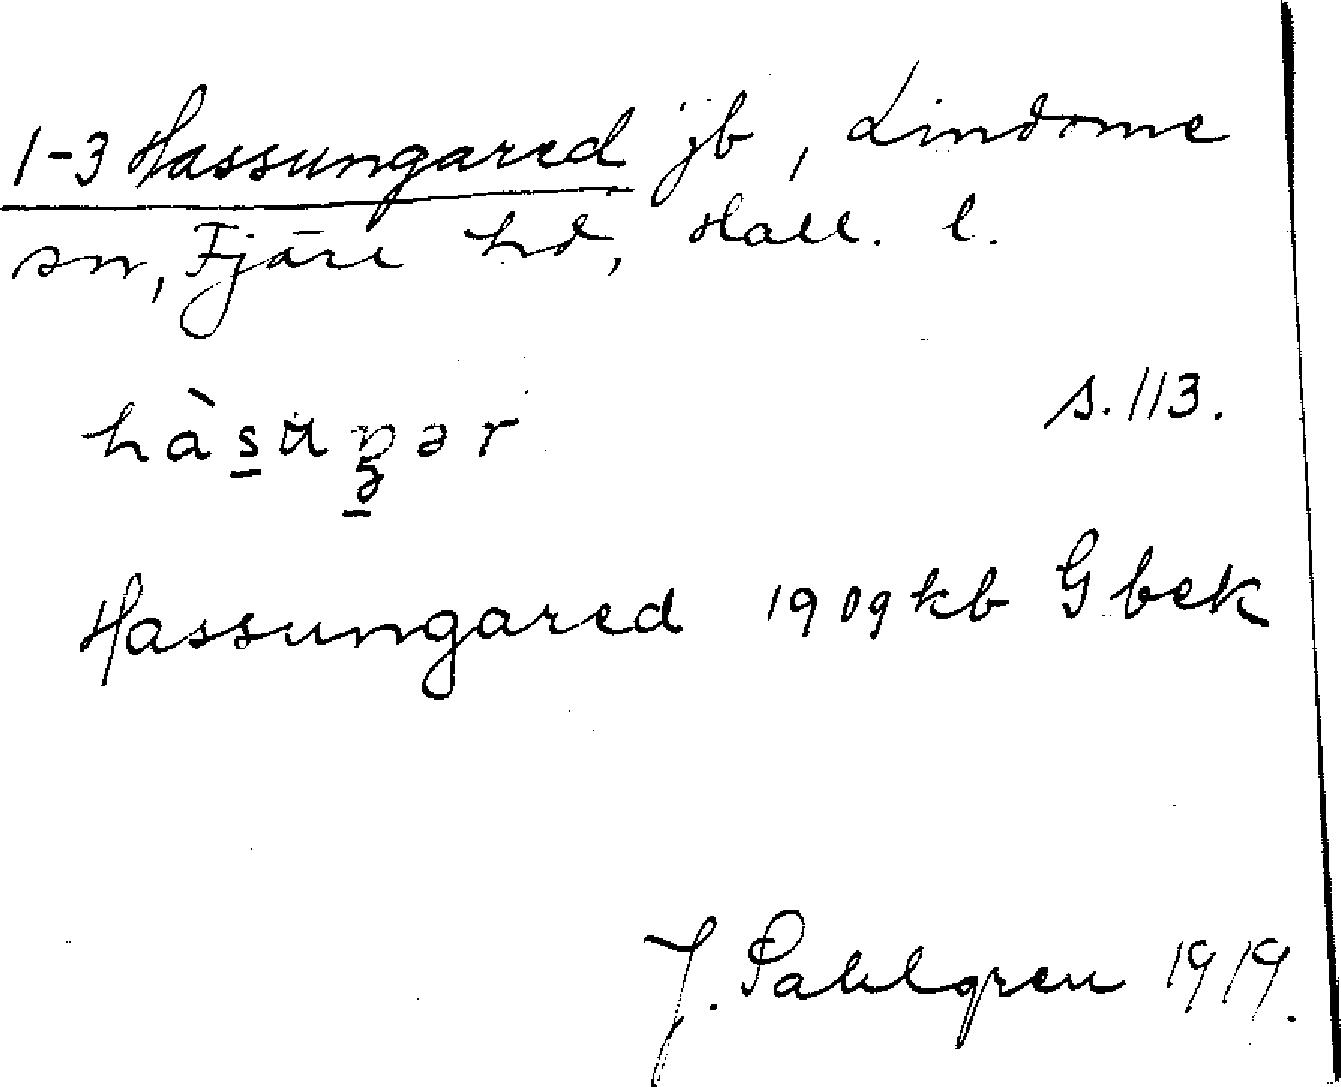 1-3 Hassungared jb, Lindome
sn, Fjäre hd, Hall. l.
s. 113.
Hassungared 1909 kb G bek
J. Sahlgren 1919.